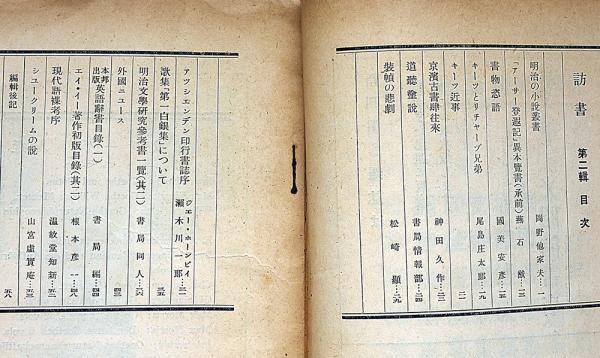 訪書 第二輯 目次
明治の小說叢書 岡野他家夫…一
「アーサー登遐記」異本覺書(承前) 蕪石猷…三
書物恣語 國美安彦…一五
キーツとリチャーズ兄弟 尾島庄太郎…一九
キーツ近事 二一
京濱古書肆往來 神田久作…二三
道聽塗說 書局情報部…二四
裝幀の悲劇 松崎顯…二九
アツシエンデン印行書誌序 ジエー・ホーンビイ…三一
歌集「第一白銀集」について 瀬木川一郎…三五
明治文學硏究參考書一覽(其二) 書局同人…三六
外國ニユース 四三
本邦出版英語辭書目錄(一) 書局編…四四
エイ・イー著作初版目錄(其二) 根本彦一…四八
現代語襍考序 溫故堂知新…五二
シユークリームの說 山宮虛實庵…五三
編輯後記 五八